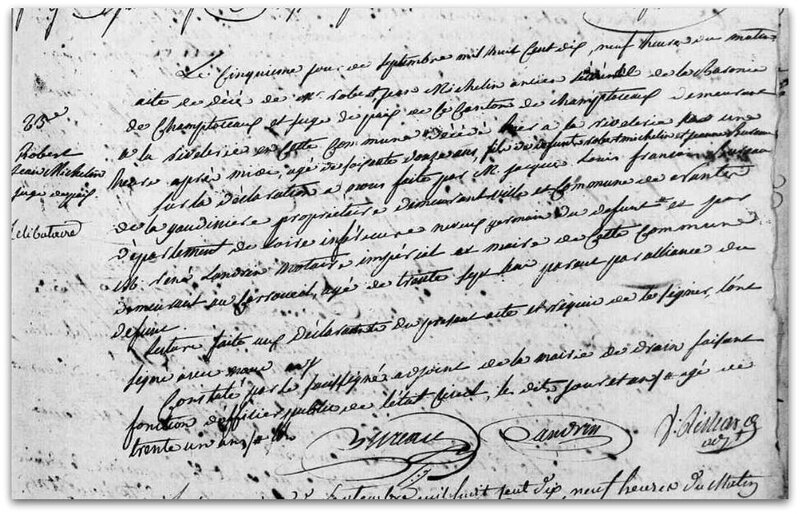 Le Cinquième jour de septembre mil huit Cent dix, neuf heures du matin
acte de décé de Mr. robert jean Michelin ancien de la Baronie
de Champtoceaux et juge de paix de le Canton de champtoceaux demeurant
à la en Cette Commune décédé hier a la une
heure après midi, agé de soixante onze ans, fils de defunts robert michelin et jeanne bureau
sur la déclaration a nous faite par M. jacque Louis françois bureau
de la gaudiniere propriétaire demeurant ville et Commune de nantes
département de loire inférieure neveu germain du defunt et par
M. rené Landrin notaire impérial et maire de Cette Commune
demeurant au agé de trente sept parent par alliance du
defunt.
Lecture faite aux déclarants du présent acte et requis de le signer, l'ont
signé avec nous
Constaté par le soussigné adjoint de la mairie de drain faisant
fonction d'officier public de l'état Civil, les dits jour et an agé de
trente un ans
Bureau Landrin
25e
Robert
jean Michelin
juge de paix
Célibataire
septembre mil huit Cent dix, neuf heures du Matin